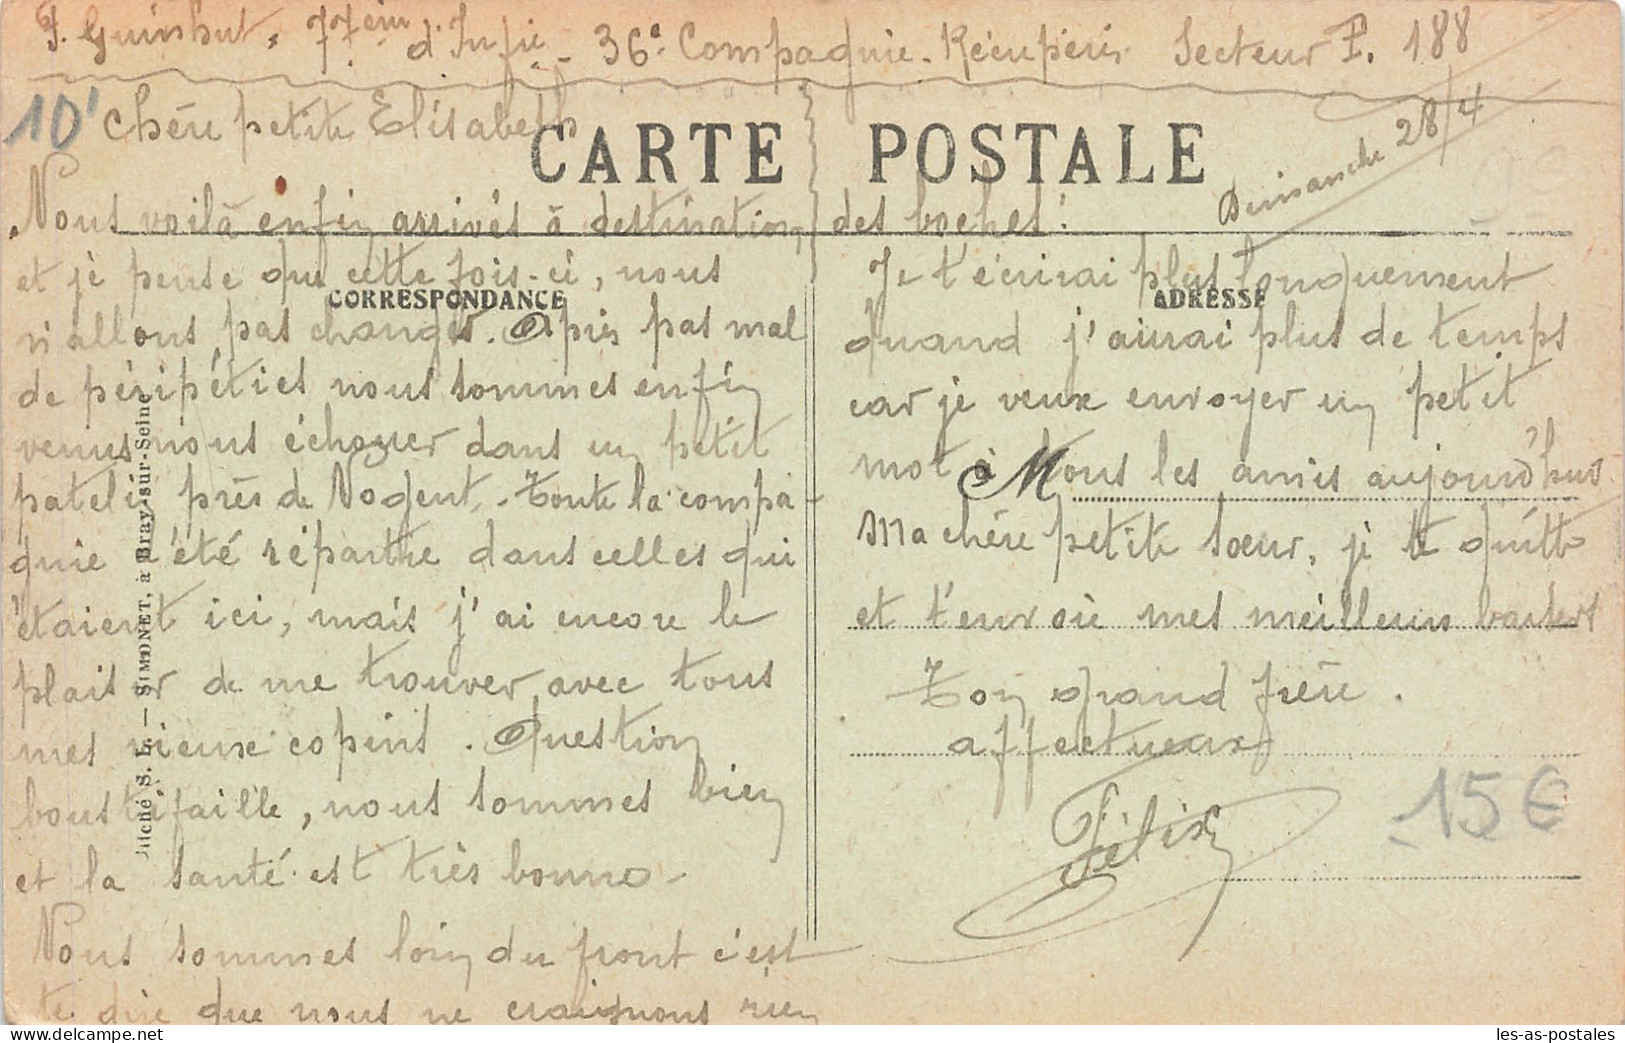 77ème d'Infie - 36e Compagnie - Récupérés Secteur P. 188
10'
Chère petite Elisabeth
CARTE POSTALE
Dimanche 28/4
Nous voilà enfin arrivés à destination
et je pense que cette fois-ci, nous
CORRESPONDANCE
n'allons pas changer. Après pas mal
de péripéties nous sommes enfin
venus nous échouer dans un petit
patelin près de Nogent. - Toute la compa-
gnie a été répartie dans celles qui
étaient ici, mais j'ai encore le
plaisir de me trouver avec tous
mes vieux copins. Question
boustifaille, nous sommes bien
et la santé est très bonne -
Nous sommes loin du front c'est
te dire que nous ne craignons rien
des boches!
Je t'écrirai plus longuement
ADRESSE
quand j'aurai plus de temps
car je veux envoyer un petit
mot à tous les amis aujourd'hui
Ma chère petite soeur, je te quitte
et t'envoie mes meilleurs baisers
Ton grand frère
affectueux
Félix
15 €
Cliché S. L. — SIMONET, à Bray-sur-Seine
delcampe.net
les-as-postales